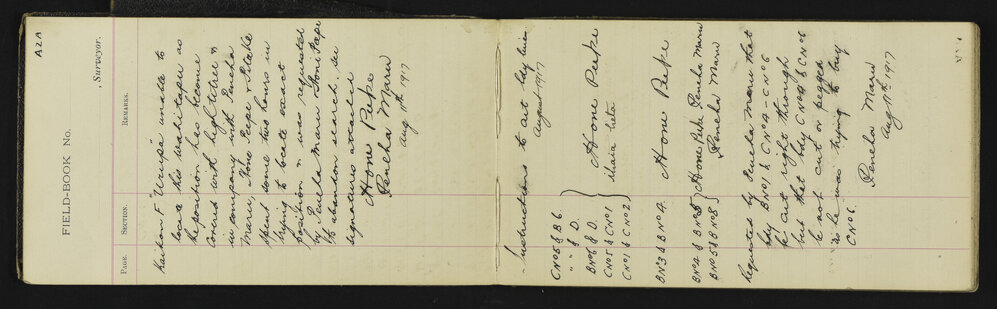 A2A
FIELD-BOOK No.
, Surveyor.
PAGE. SECTION. REMARKS.
"F" "Urupa" unable to
locate this wahi tapu as
the position has become
covered with high titree &
in company with Peneha
Maru, Hone Peke &
spent some two hours in
trying to locate exact
position & was requested
by Peneha Maru & Hone Peke
to abandon search, see
signatures attached
Hone Peeke
Peneha Maru
Aug 11th 1917
Instructions to cut bdy lines
August 1917
C No 5 & B 6
" " & D.
B No 6 & D. } Hone Peeke
C No 5 & C No 1
C No 1 & C No 2 }
B No 3 & B No 4. Hone Peke
B No 4 & B No 5 } Hone Peke Peneha Maru
B No 5 & B No 8 } Peneha Maru
Requested by Peneha Maru that
bdy B No 1 & C No 4 - C No 6
be cut right through
but that bdy C No 5 & C No 6
be not cut or pegged
as he was trying to buy
C No 6.
Peneha Maru
Aug 11th 1917